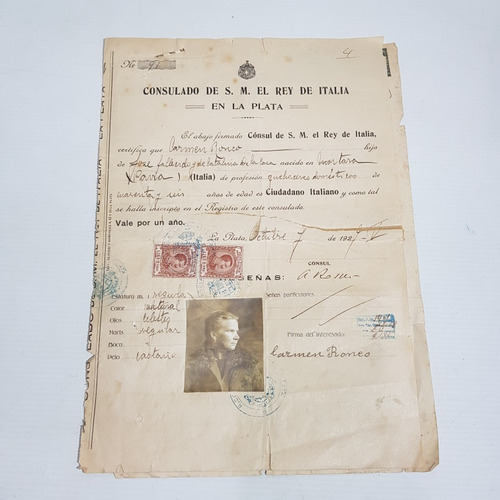 No 91
CONSULADO DE S. M. EL REY DE ITALIA
EN LA PLATA
El abajo firmado Cónsul de S. M. el Rey de Italia,
certifica que Carmen Ronco hija
de José fallecido y de Catalina de la Loca nacido en Mortara
(Pavia) (Italia) de profesión quehaceres domésticos de
cuarenta y seis años de edad es Ciudadano Italiano y como tal
se halla inscripto en el Registro de este consulado.
Vale por un año.
La Plata, Octubre 7 de 192
CONSUL
SEÑAS:
Estatura m. regular
Señas particulares
Color natural
Ojos celestes
Nariz regular
Boca
Pelo castaño
Firma del interesado:
Carmen Ronco